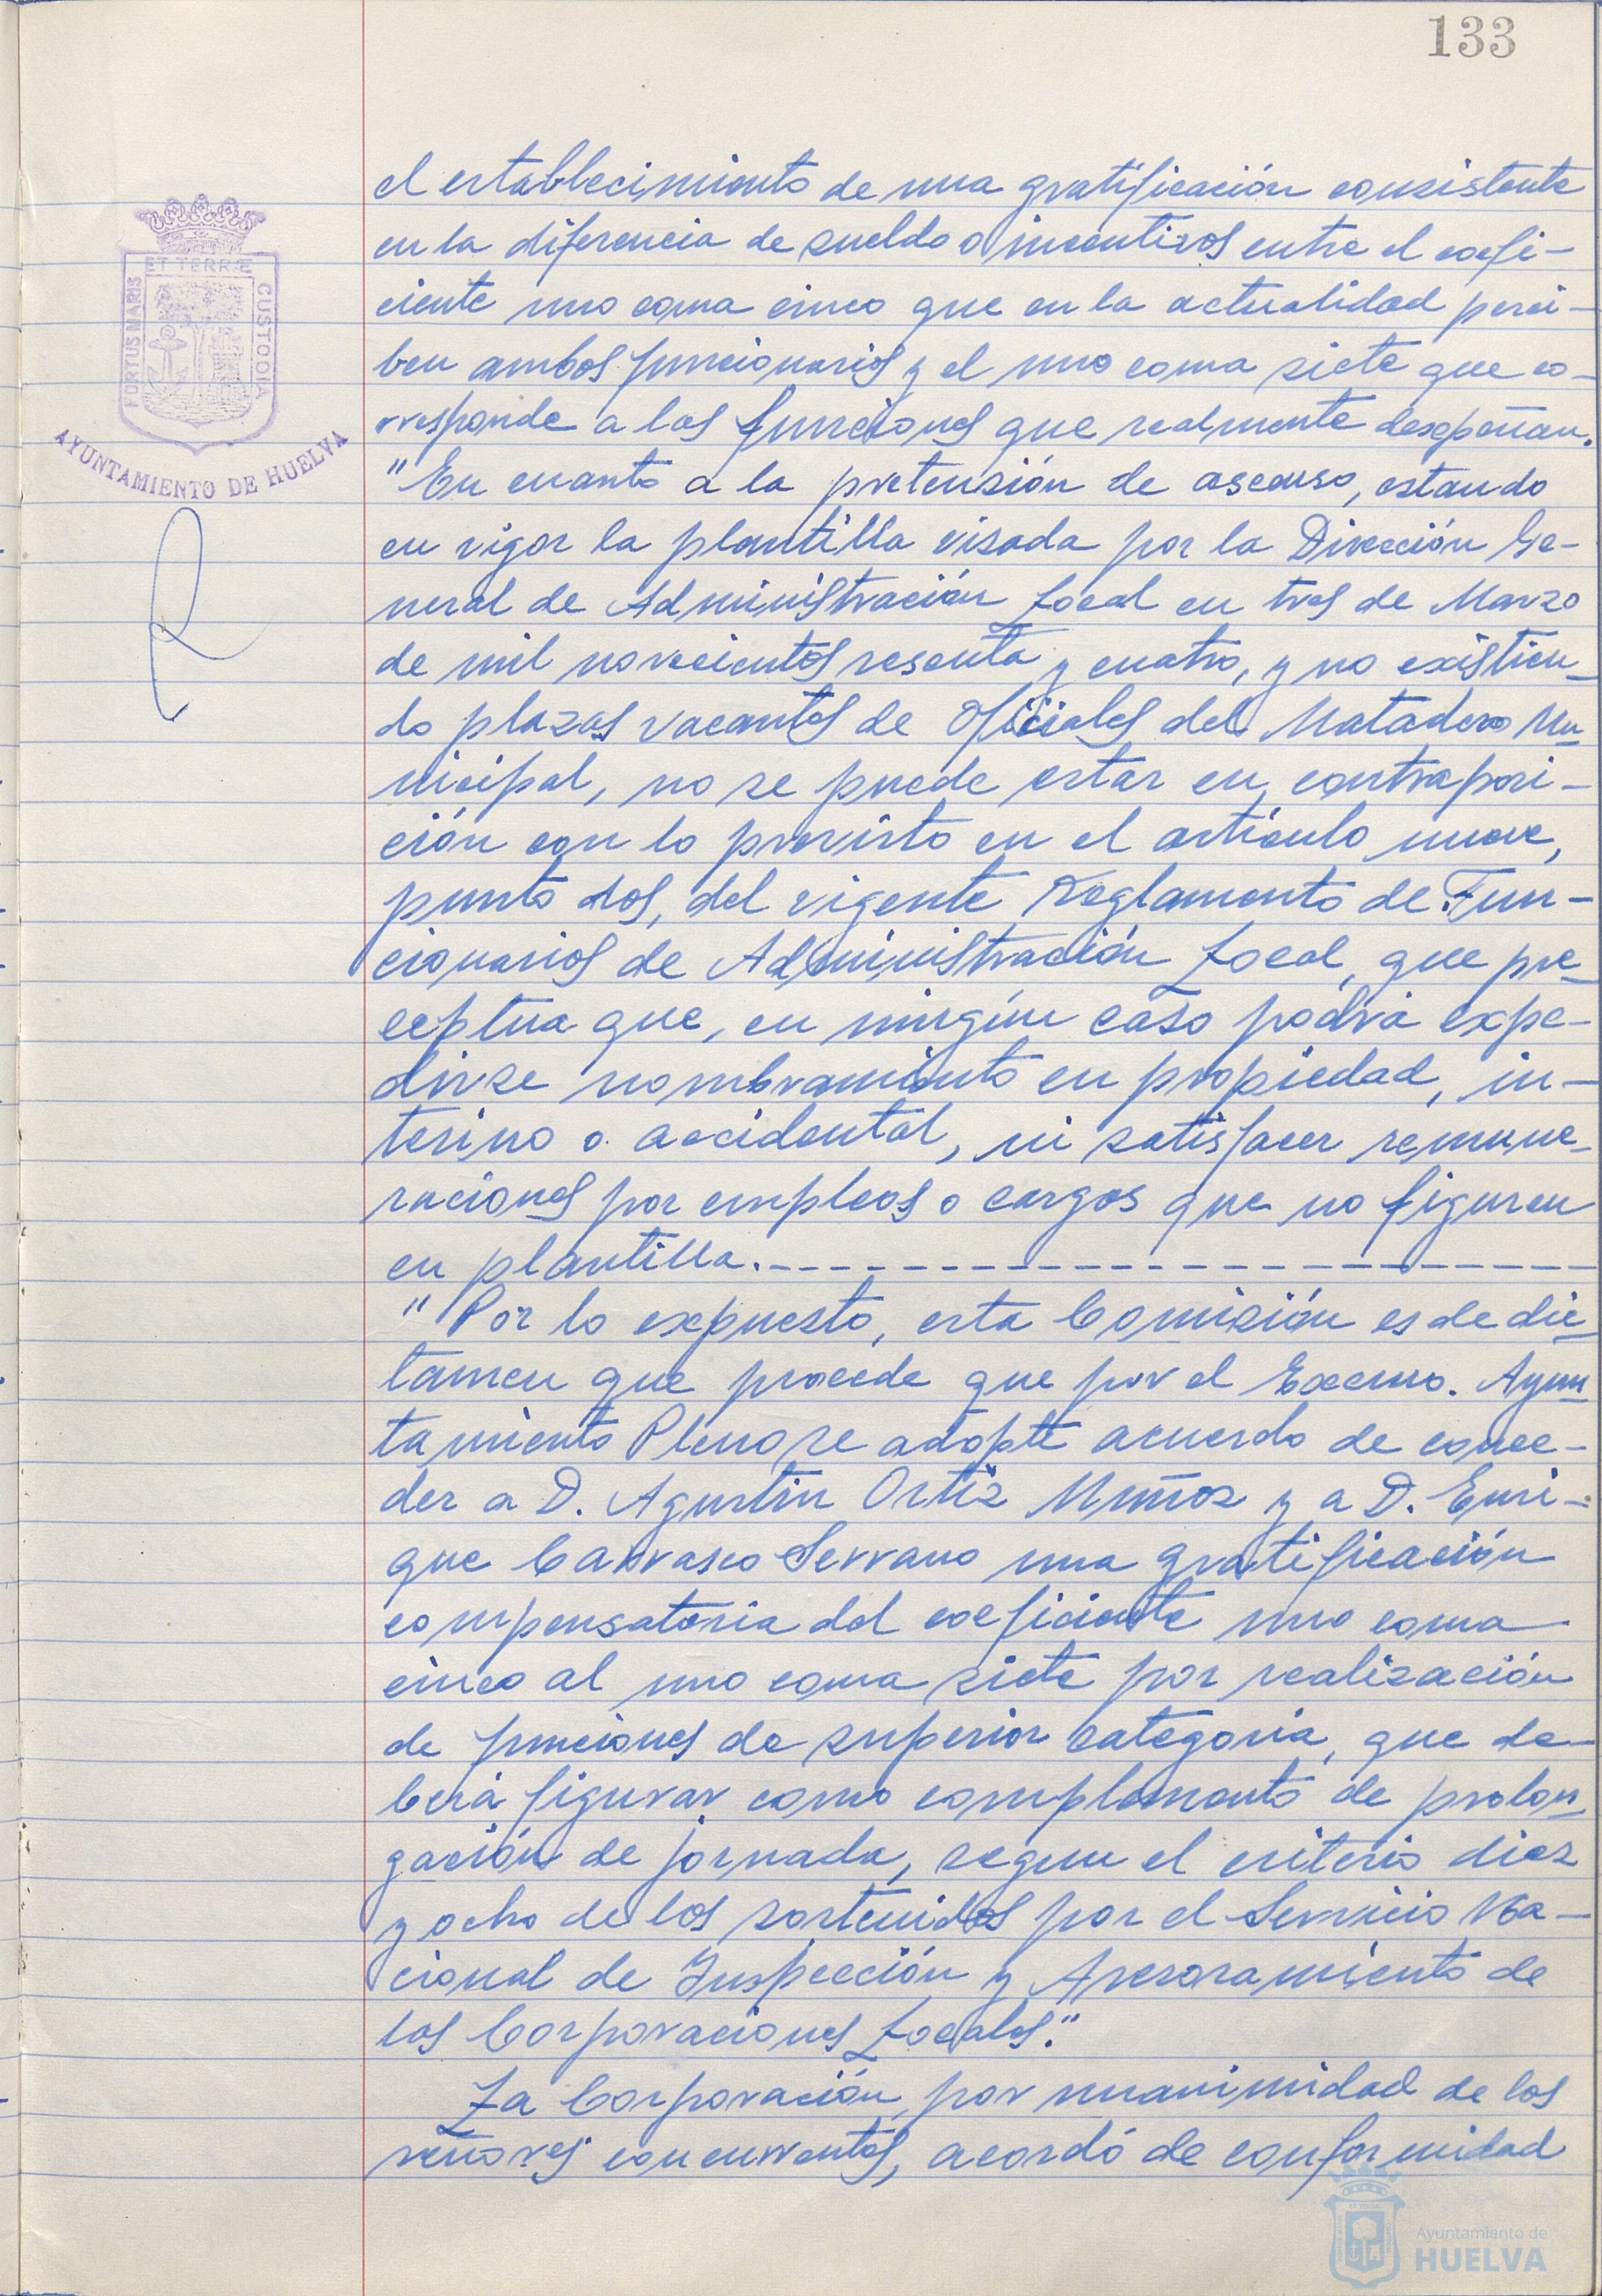 133
el establecimiento de una gratificación consistente
en la diferencia de sueldo o incentivos entre el coefi-
ciente uno coma cinco que en la actualidad perci-
ben ambos funcionarios y el uno coma siete que co-
rresponde a las funciones que realmente desepeñan.
"En cuanto a la pretensión de ascenso, estando
en vigor la plantilla visada por la Dirección Ge-
neral de Administración Local en tres de Marzo
de mil novecientos sesenta y cuatro, y no existien-
do plazas vacantes de Oficiales del Matadero Mu-
nicipal, no se puede estar en contraposi-
ción con lo previsto en el artículo nueve,
punto dos, del vigente Reglamento de Fun-
cionarios de Administración Local, que pre-
ceptua que, en ningún caso podrá expe-
dirse nombramiento en propiedad, in-
terino o accidental, ni satisfacer remune-
raciones por empleos o cargos que no figuren
en plantilla.-------------------
"Por lo expuesto, esta Comisión es de dic-
tamen que procede que por el Excmo. Ayun-
tamiento Pleno se adopte acuerdo de conce-
der a D. Agustín Ortiz Muñoz y a D. Enri-
que Carrasco Serrano una gratificación
compensatoria del coeficiente uno coma
cinco al uno coma siete por realización
de funciones de superior categoría, que de-
berá figurar como complemento de prolon-
gación de jornada, segun el criterio diez
y ocho de los sostenidos por el Servicio Na-
cional de Inspección y Asesoramiento de
las Corporaciones Locales."
La Corporación, por unanimidad de los
señores concurrentes, acordó de conformidad
PORTUS MARIS
ET TERRÆ
CUSTODIA
AYUNTAMIENTO DE HUELVA
Ayuntamiento de
HUELVA